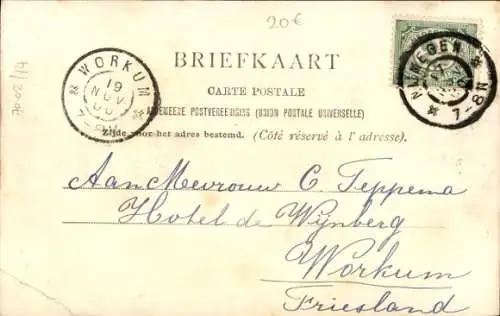 20€
7002/14
WORKUM
19
NOV
00
7-8V
NIJMEGEN
7-8N
BRIEFKAART
CARTE POSTALE
ALGEMEENE POSTVEREENIGING (UNION POSTALE UNIVERSELLE)
Zijde voor het adres bestemd. (Côté réservé à l'adresse).
Aan Mevrouw C. Teppema
Hotel de Wijnberg
Workum
Friesland